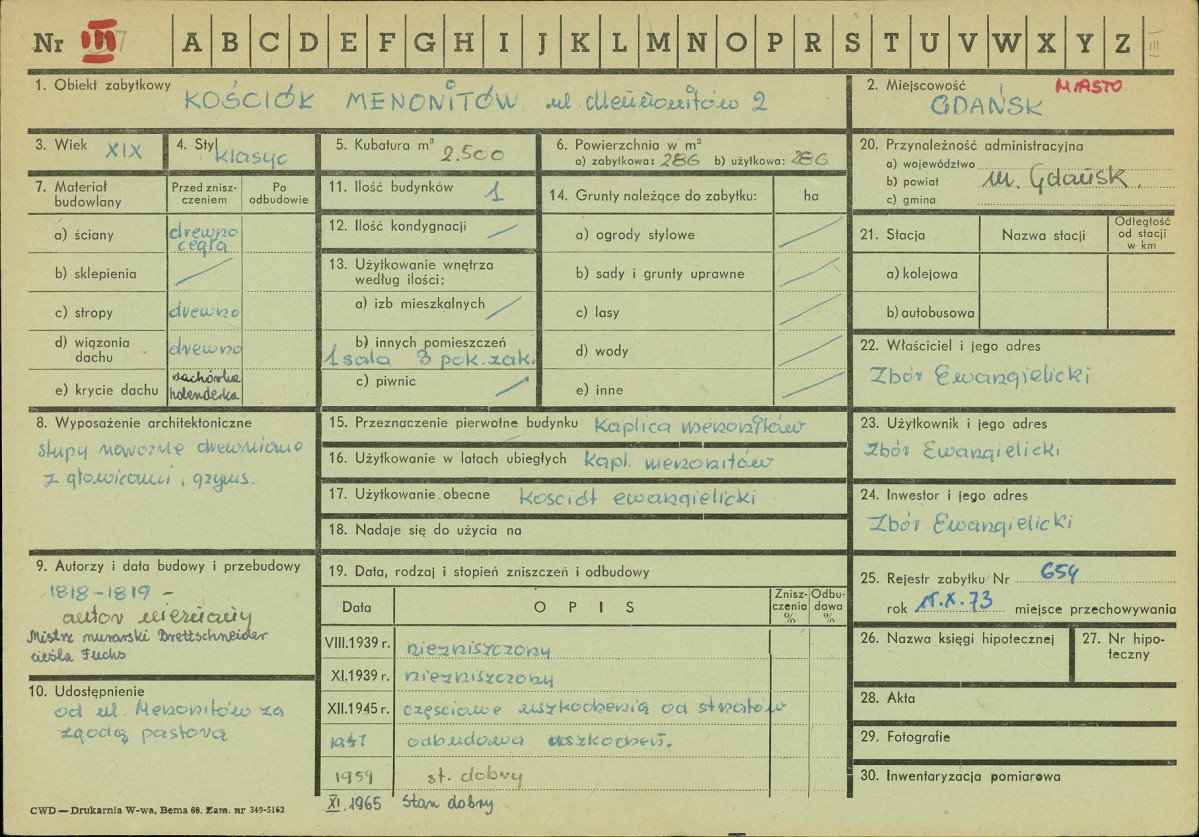 Nr III 7 A B C D E F G H I J K L M N O P R S T U V W X Y Z III
1. Obiekt zabytkowy KOŚCIÓŁ MENONITÓW ul Menonitów 2
2. Miejscowość MIASTO
GDAŃSK
3. Wiek XIX
4. Styl klasyc
5. Kubatura m³ 2.500
6. Powierzchnia w m²
a) zabytkowa: 286 b) użytkowa: 286
20. Przynależność administracyjna
a) województwo
b) powiat m. Gdańsk.
c) gmina
7. Materiał budowlany
Przed znisz-
czeniem
Po
odbudowie
a) ściany drewno
cegła
b) sklepienia
c) stropy drewno
d) wiązania
dachu drewno
e) krycie dachu dachówka
holenderka
11. Ilość budynków 1
12. Ilość kondygnacji
13. Użytkowanie wnętrza
według ilości:
a) izb mieszkalnych
b) innych pomieszczeń
1 sala 3 pok. zak.
c) piwnic
14. Grunty należące do zabytku: ha
a) ogrody stylowe
b) sady i grunty uprawne
c) lasy
d) wody
e) inne
21. Stacja Nazwa stacji
Odległość
od stacji
w km
a) kolejowa
b) autobusowa
22. Właściciel i jego adres
Zbór Ewangielicki
8. Wyposażenie architektoniczne
słupy nawozne drewniane
z głowicami i gzyms.
15. Przeznaczenie pierwotne budynku Kaplica menonitów
16. Użytkowanie w latach ubiegłych kapl. menonitów
17. Użytkowanie obecne kościół ewangielicki
18. Nadaje się do użycia na
23. Użytkownik i jego adres
Zbór Ewangielicki
24. Inwestor i jego adres
Zbór Ewangielicki
9. Autorzy i data budowy i przebudowy
1818-1819 -
autor nieznany
Mistrz murarski Brettschneider
cieśla Fuchs
10. Udostępnienie
od ul. Menonitów za
zgodą pastora
19. Data, rodzaj i stopień zniszczeń i odbudowy
Data OPIS
Znisz-
czenia
%
Odbu-
dowa
%
VIII.1939 r. niezniszczony
XI.1939 r. niezniszczony
XII.1945 r. częściowe uszkodzenia od strzałów
1947 odbudowa uszkodzeń.
1959 st. dobry
XI.1965 Stan dobry
25. Rejestr zabytku Nr 654
rok 15.X.73 miejsce przechowywania
26. Nazwa księgi hipotecznej
27. Nr hipo-
teczny
28. Akta
29. Fotografie
30. Inwentaryzacja pomiarowa
CWD — Drukarnia W-wa, Bema 60. Zam. nr 349-5162